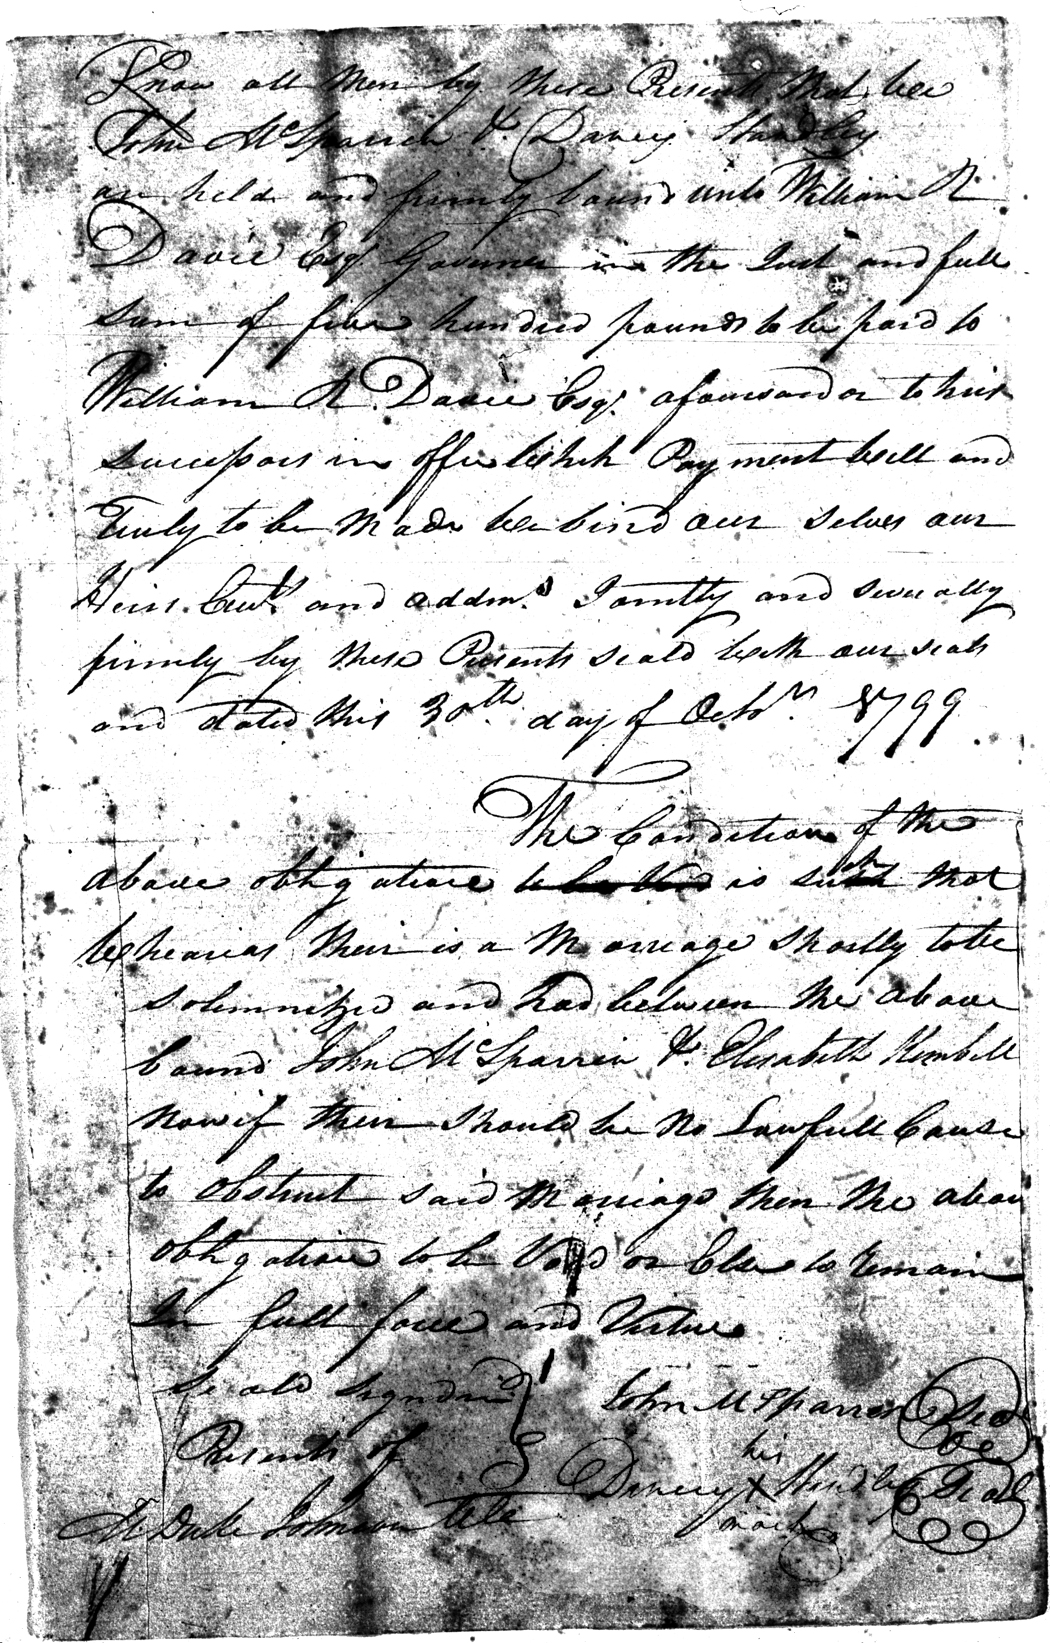 Know all Men by these Presents that we
John McSparrin & Dancy Standley
are held and firmly bound unto William R
Davie Esqr Governer in the Just and full
sum of five hundred pounds to be paid to
William R. Davie Esqr. aforesaid or to his
successors in office Which Payment Well and
Truly to be Made we bind our selves our
Heirs Exrs and addmrs Jointly and severally
firmly by these Presents seald with our seals
and dated this 30th day of Octbr 1799
The Condition of the
above obligation to be Void is such that
Whearas their is a Marreage Shortly to be
solemnitzed and had between the above
bound John McSparrin & Elisabeth Kimbell
now if their should be No Lawfull Cause
to obstruct said Marriage then the above
obligation to be Void or Else to remain
In full force and Virtue
Seald signd in John McSparren Seal
Presents of his
Dancy X Standley Seal
mark
M Duke Johnson